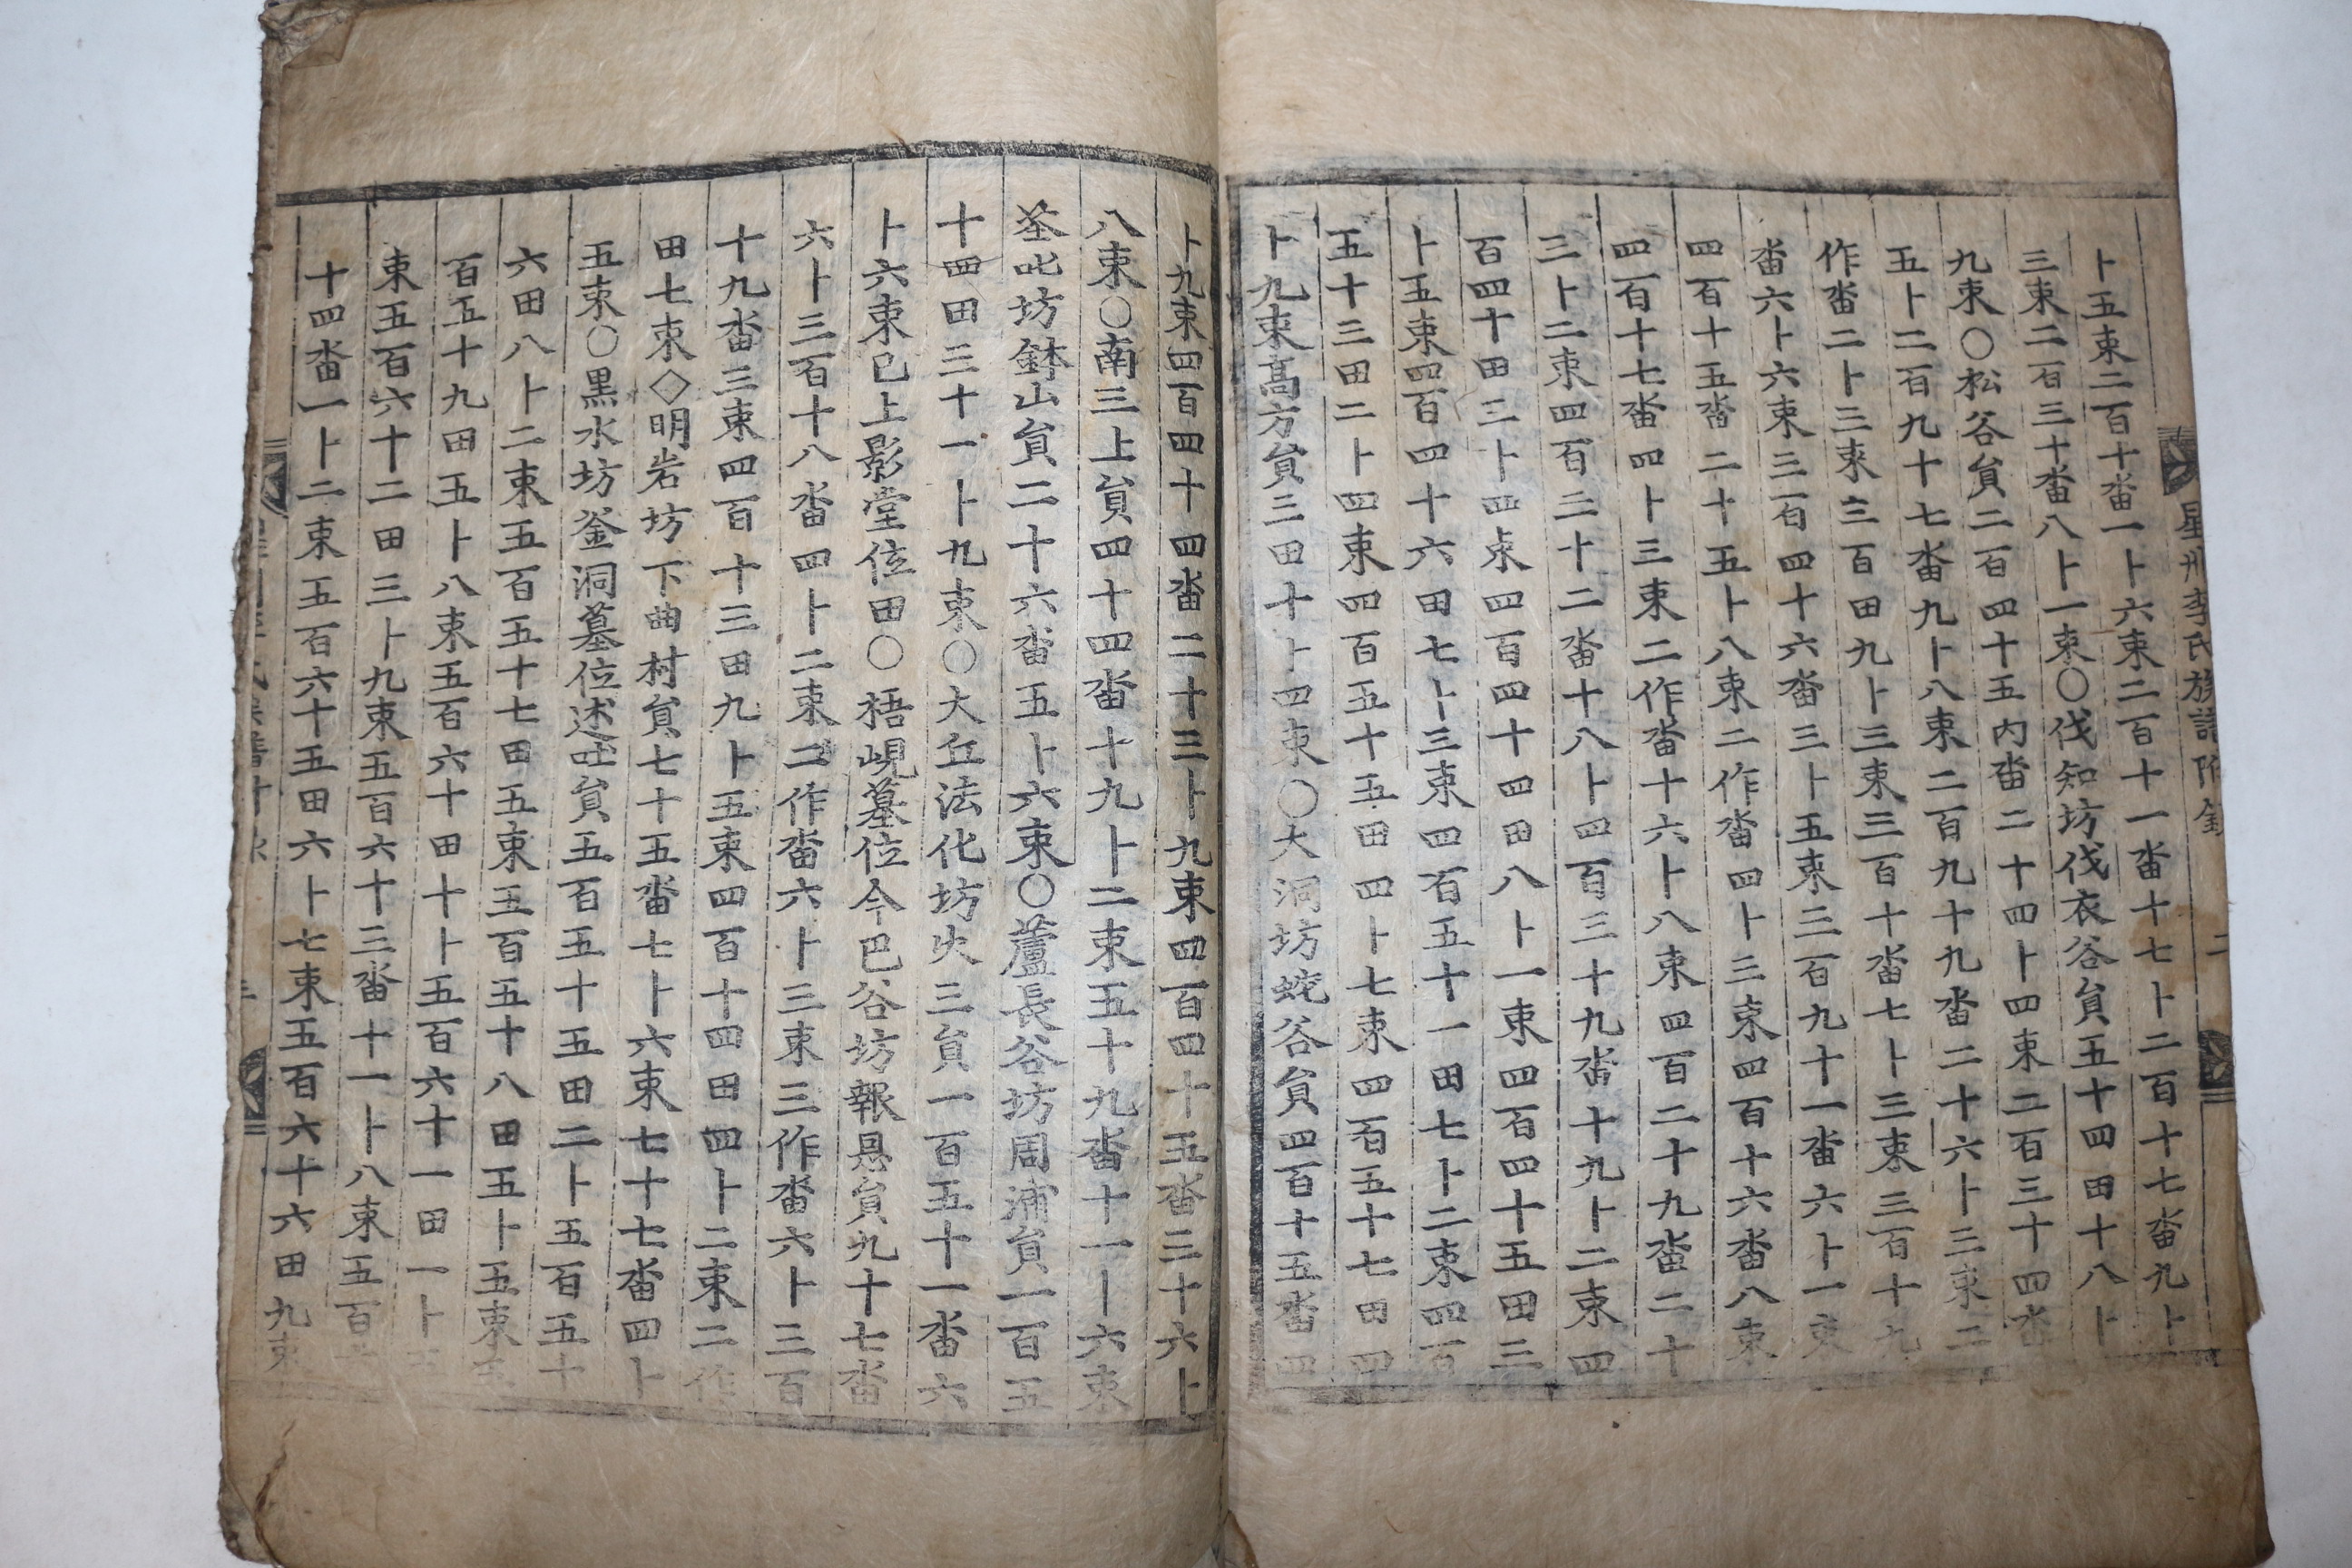 星州李氏族譜附錄
二
卜五束二百十畓一卜六束二百十一畓十七卜二百十七畓九卜
三束二百三十畓八卜一束○伐知坊伐衣谷員五十四田十八卜
九束○松谷員二百四十五內畓二十四卜四束二百三十四畓
五卜二百九十七畓九卜八束二百九十九畓二十六卜三束二
作畓二卜三束三百田九卜三束三百十畓七卜三束三百十九
畓六卜六束三百四十六畓三卜五束三百九十一畓六卜一束
四百十五畓二十五卜八束二作畓四卜三束四百十六畓八束
四百十七畓四卜三束二作畓十六卜八束四百二十九畓二十
三卜二束四百三十二畓十八卜四百三十九畓十九卜二束四
百四十田三卜四束四百四十四田八卜一束四百四十五田三
卜五束四百四十六田七卜三束四百五十一田七卜二束四百
五十三田二卜四束四百五十五田四卜七束四百五十七田四
卜九束高方員三田十卜四束○大洞坊蛇谷員四百十五畓四
卜九束四百四十四畓二十三卜九束四百四十五畓三十六卜
八束○南三上員四十四畓十九卜二束五十九畓十一卜六束
荃叱坊鉢山員二十六畓五卜六束○蘆長谷坊周浦員一百五
十四田三十一卜九束○大丘法化坊火三員一百五十一畓六
卜六束已上影堂位田○梧峴墓位今巴谷坊報恩員九十七畓
六卜三百十八畓四卜二束二作畓六卜三束三作畓六卜三百
十九畓三束四百十三田九卜五束四百十四田四卜二束二作
田七束◇明岩坊下曲村員七十五畓七卜六束七十七畓四卜
五束○黑水坊釜洞墓位述吐員五百五十五田二卜五百五十
六田八卜二束五百五十七田五束五百五十八田五卜五束
百五十九田五卜八束五百六十田十卜五百六十一田一卜
束五百六十二田三卜九束五百六十三畓十一卜八束五百
十四畓一卜二束五百六十五田六卜七束五百六十六田九束